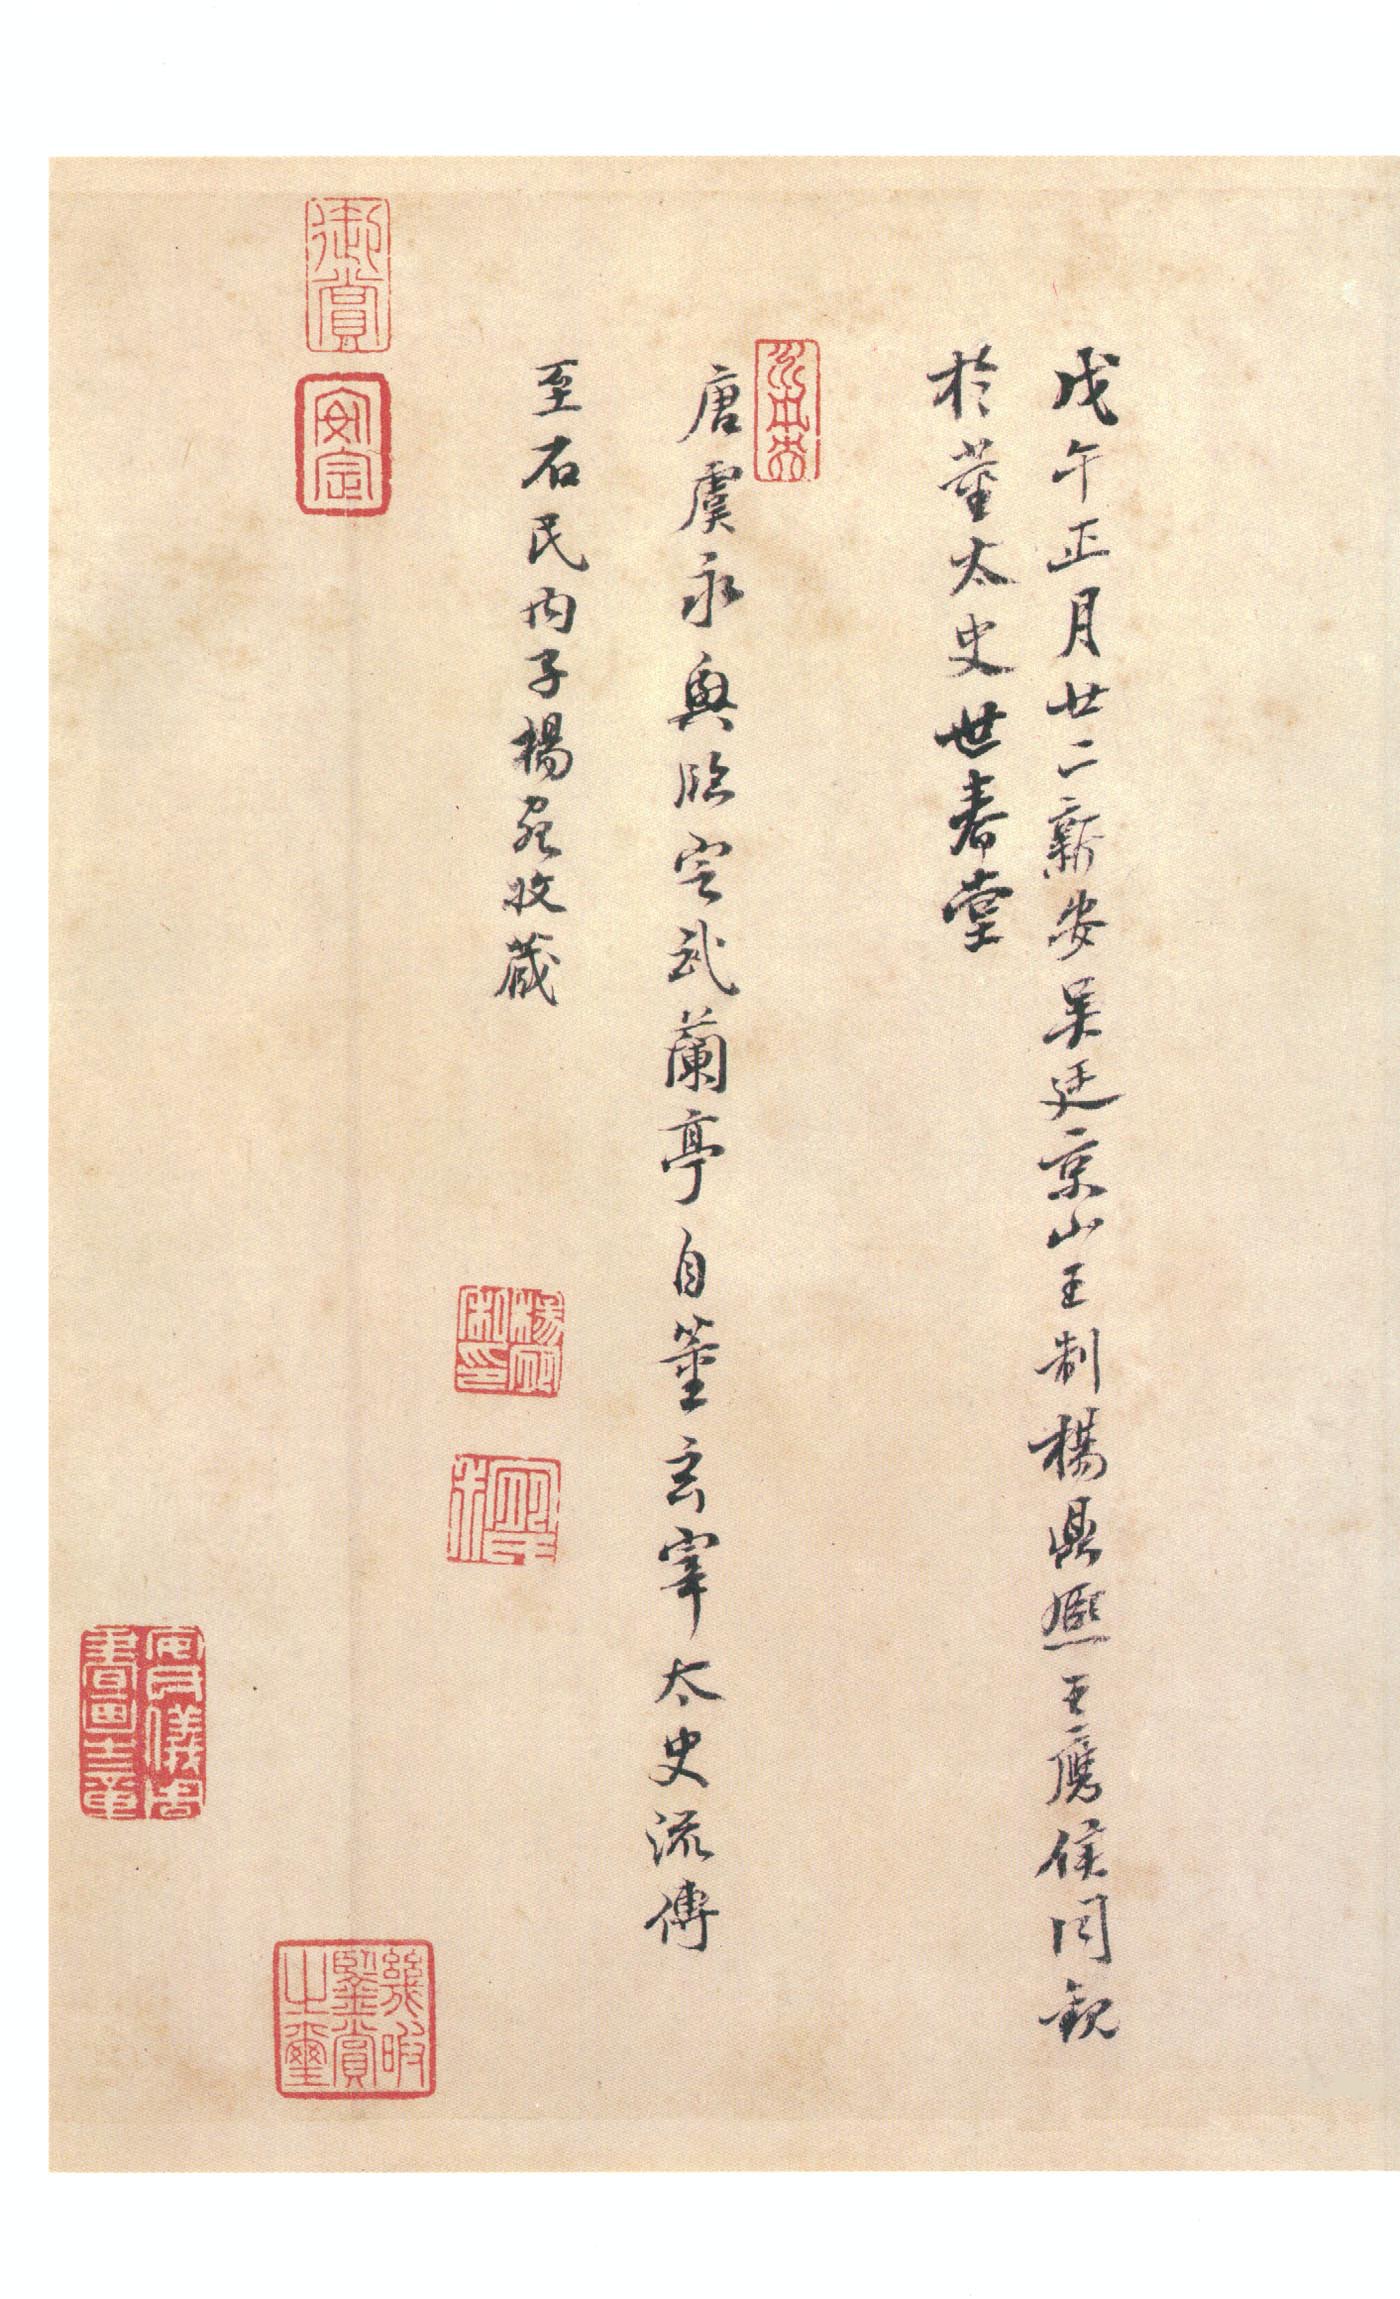 戊午正月廿二新安吳廷京山王制楊鼎熙王應侯同觀
於董太史世春堂
唐虞永興臨定武蘭亭自董玄宰太史流傳
至石民內子楊宛收藏
御賞
安定
楊宛
叔印
寫儀客書畫之章
幾暇鑒賞之璽